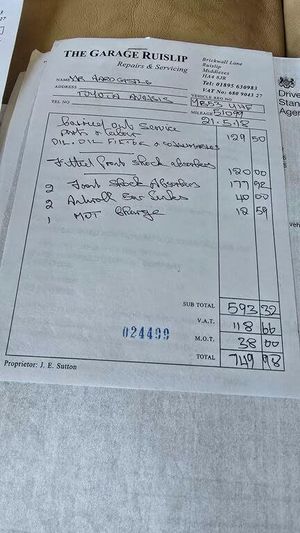 THE GARAGE RUISLIP
Repairs & Servicing
Brickwall Lane
Ruislip
Middlesex
HA4 8JR
Tel: 01895 630983
VAT No: 680 9041 27
NAME MR
ADDRESS TOYOTA AVENSIS
TEL NO
VEHICLE REG NO
MILEAGE 51099
21.5.18
Carried out service
Parts & Labour 129 50
OIL. OIL FILTER &
Fitted front shock absorbers 180 00
2 Front Shock Absorbers 177 92
2 Antiroll Bar Links 40 00
1 MOT Charge 18 59
SUB TOTAL 593 32
V.A.T. 118 66
M.O.T. 38 00
TOTAL 749 98
024499
Proprietor: J. E. Sutton
Drive
Stand
Agen